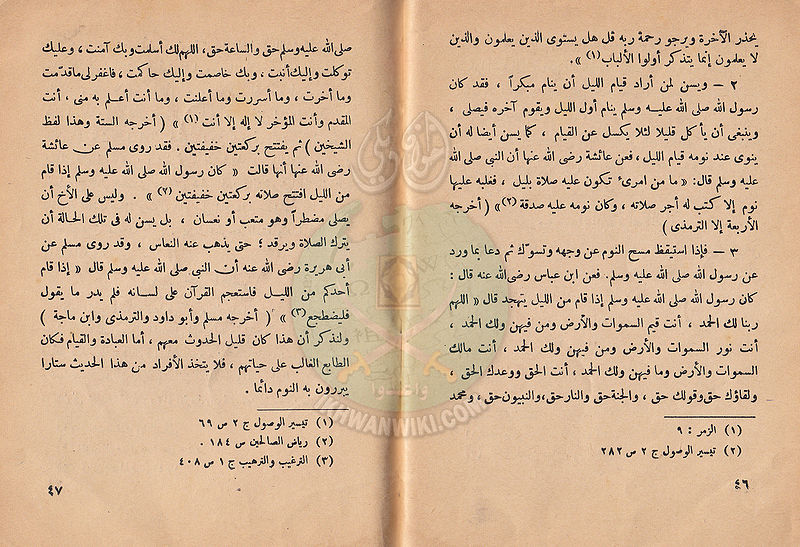 يحذر الآخرة ويرجو رحمة ربه قل هل يستوى الذين يعلمون والذين
لا يعلمون إنما يتذكر أولوا الألباب (١) » .
٢ — ويسن لمن أراد قيام الليل أن ينام مبكراً ، فقد كان
رسول الله صلى الله عليه وسلم ينام أول الليل ويقوم آخره فيصلى ،
وينبغى أن يأكل قليلا لئلا يكسل عن القيام ، كما يسن أيضا له أن
ينوى عند نومه قيام الليل ، فعن عائشة رضى الله عنها أن النبى صلى الله
عليه وسلم قال : « ما من امرىء تكون عليه صلاة بليل ، فغلبه عليها
نوم إلا كتب له أجر صلاته ، وكان نومه عليه صدقة (٢) » ( أخرجه
الأربعة إلا الترمذى )
٣ — فإذا استيقظ مسح النوم عن وجهه وتسوك ثم دعا بما ورد
عن رسول الله صلى الله عليه وسلم . فعن ابن عباس رضى الله عنه قال :
كان رسول الله صلى الله عليه وسلم إذا قام من الليل يتهجد قال « اللهم
ربنا لك الحمد ، أنت قيم السموات والأرض ومن فيهن ولك الحمد ،
أنت نور السموات والأرض ومن فيهن ولك الحمد ، أنت مالك
السموات والأرض وما فيهن ولك الحمد ، أنت الحق ووعدك الحق ،
ولقاؤك حق وقولك حق ، والجنة حق والنار حق ، والنبيون حق ، ومحمد
(١) الزمر : ٩
(٢) تيسير الوصول ج ٢ ص ٢٨٢
٤٦
صلى الله عليه وسلم حق والساعة حق ، اللهم لك أسلمت وبك آمنت ، وعليك
توكلت وإليك أنبت ، وبك خاصمت وإليك حاكمت ، فاغفر لى ما قدمت
وما أخرت ، وما أسررت وما أعلنت ، وما أنت أعلم به منى ، أنت
المقدم وأنت المؤخر لا إله إلا أنت (١) » ( أخرجه الستة وهذا لفظ
الشيخين ) ثم يفتتح بركعتين خفيفتين . فقد روى مسلم عن عائشة
رضى الله عنها أنها قالت « كان رسول الله صلى الله عليه وسلم إذا قام
من الليل افتتح صلاته بركعتين خفيفتين (٢) » . وليس على الأخ أن
يصلى مضطراً وهو متعب أو نعسان ، بل يسن له فى تلك الحالة أن
يترك الصلاة ويرقد ؛ حتى يذهب عنه النعاس ، وقد روى مسلم عن
أبى هريرة رضى الله عنه أن النبى صلى الله عليه وسلم قال « إذا قام
أحدكم من الليل فاستعجم القرآن على لسانه فلم يدر ما يقول
فليضطجع (٣) » ( أخرجه مسلم وأبو داود والترمذى وابن ماجة )
ولنذكر أن هذا كان قليل الحدوث معهم ، أما العبادة والقيام فكان
الطابع الغالب على حياتهم ، فلا يتخذ الأفراد من هذا الحديث ستارا
يبررون به النوم دائما .
(١) تيسير الوصول ج ٢ ص ٦٩
(٢) رياض الصالحين ص ١٨٤ .
(٣) الترغيب والترهيب ج ١ ص ٤٠٨
٤٧
وأعدوا
IKHWANWIKI.COM